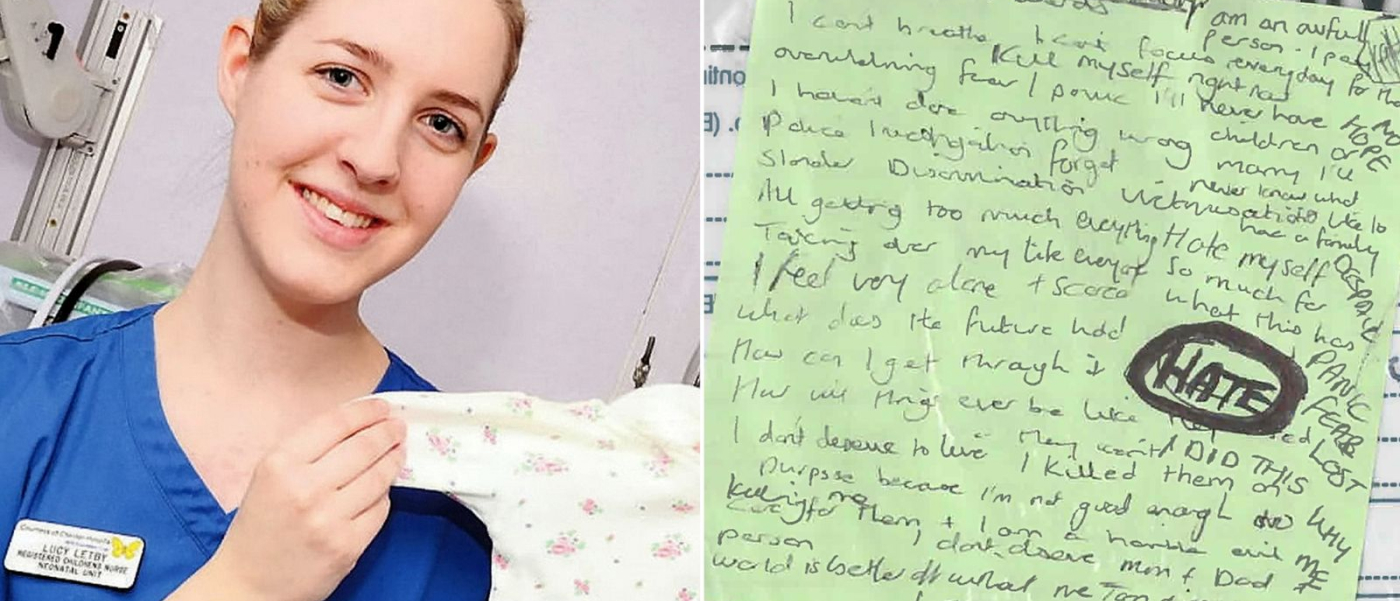 Countess of Chester Hospital
LUCY LETBY
REGISTERED CHILDRENS NURSE
NEONATAL UNIT
am an awful
person - I pay
I cant breathe I cant focus everyday for
Kill myself right now
overwhelming fear / panic I'll never have HOPE
I haven't done anything wrong children or
Police Investigation forget marry I'll
never know what
Slander Discrimination Victimisation like to
have a family
All getting too much everything Hate myself DESPAIR
Taking over my life so much for
I feel very alone + scared what this has
What does the future hold
How can I get through it PANIC
HATE
FEAR
How will things ever be like LOST
I don't deserve to live They can't I DID THIS
I killed them on
purpose because I'm not good enough to WHY
care for them + I am a horrible evil ME
person I don't deserve mum + Dad
world is better off without me